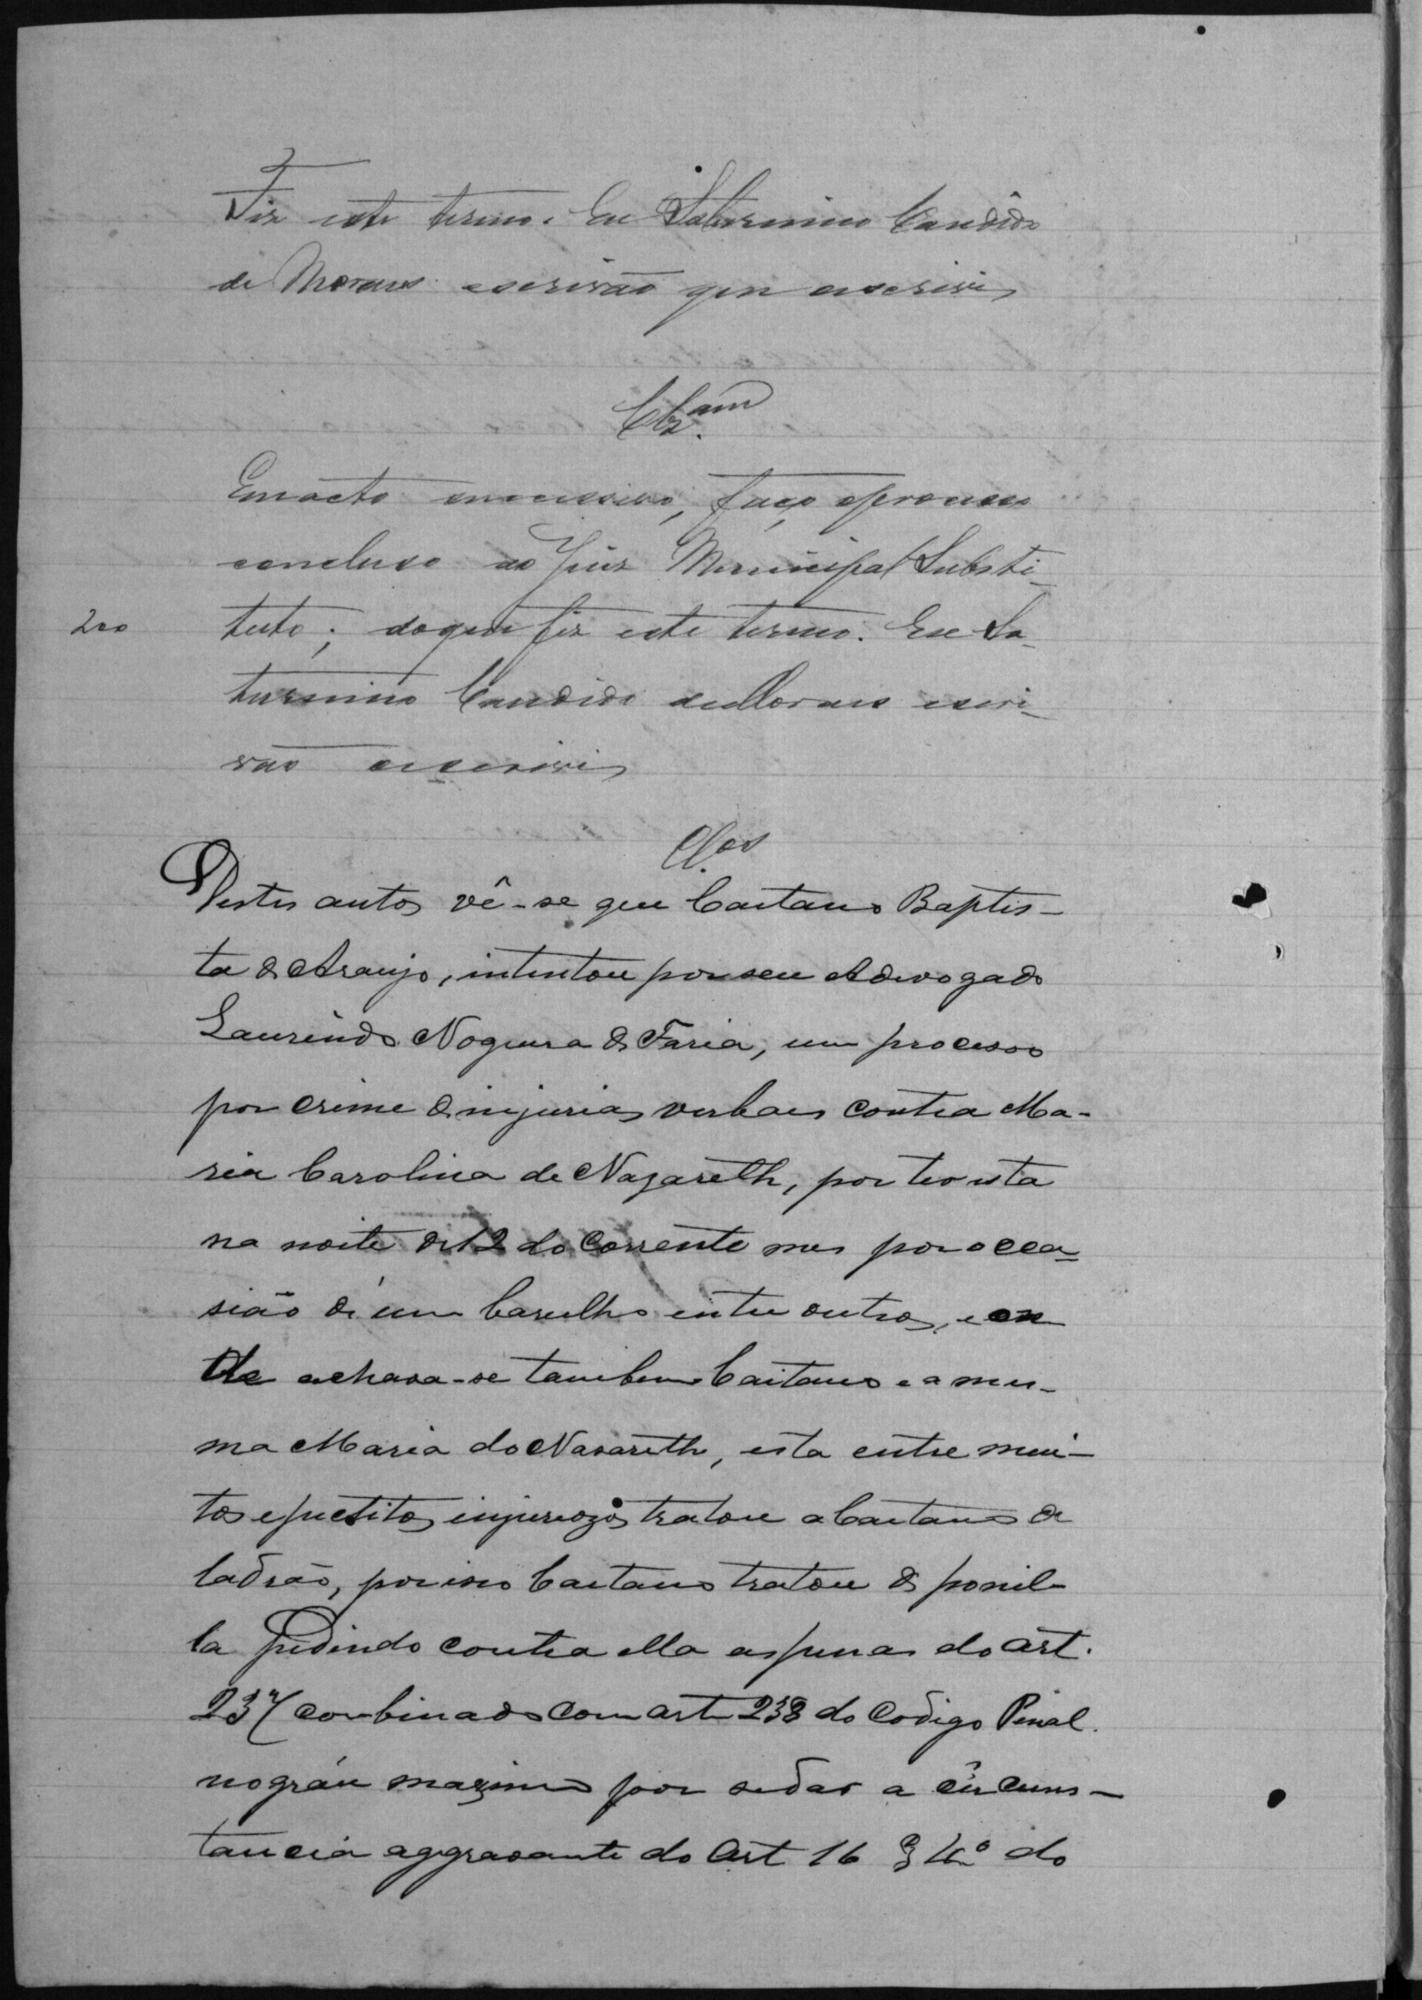 Fiz este termo. Eu Saturnino Candido
de Moraes escrivão que escrevi
Clz.am
Em acto successivo, faço o processo
concluso ao Juiz Municipal Substi-
200
tuto; do que fiz este termo. Eu Sa-
turnino Candido de Moraes escri-
vão escrevi
Cl.os
Destes autos vê-se que Caetano Baptis-
ta de Araujo, intentou por seu Advogado
Laurindo Nogueira de Faria, um processo
por crime de injurias verbaes contra Ma-
ria Carolina de Nazareth, por ter esta
na noite de 12 do corrente mes por occa-
sião de um barulho entre outros, e on
de achava-se tambem Caitano e a mes-
ma Maria do Nasareth, esta entre mui-
tos epuetitos injuriozos tratou a Caetano de
ladrão, por isso Caetano tratou de ponil-
la pedindo contra ella as penas do art.
237 combinado com art 238 do Codigo Penal.
no gráu maximo por se dar a circums-
tancia aggravante do Art 16 § 4º do